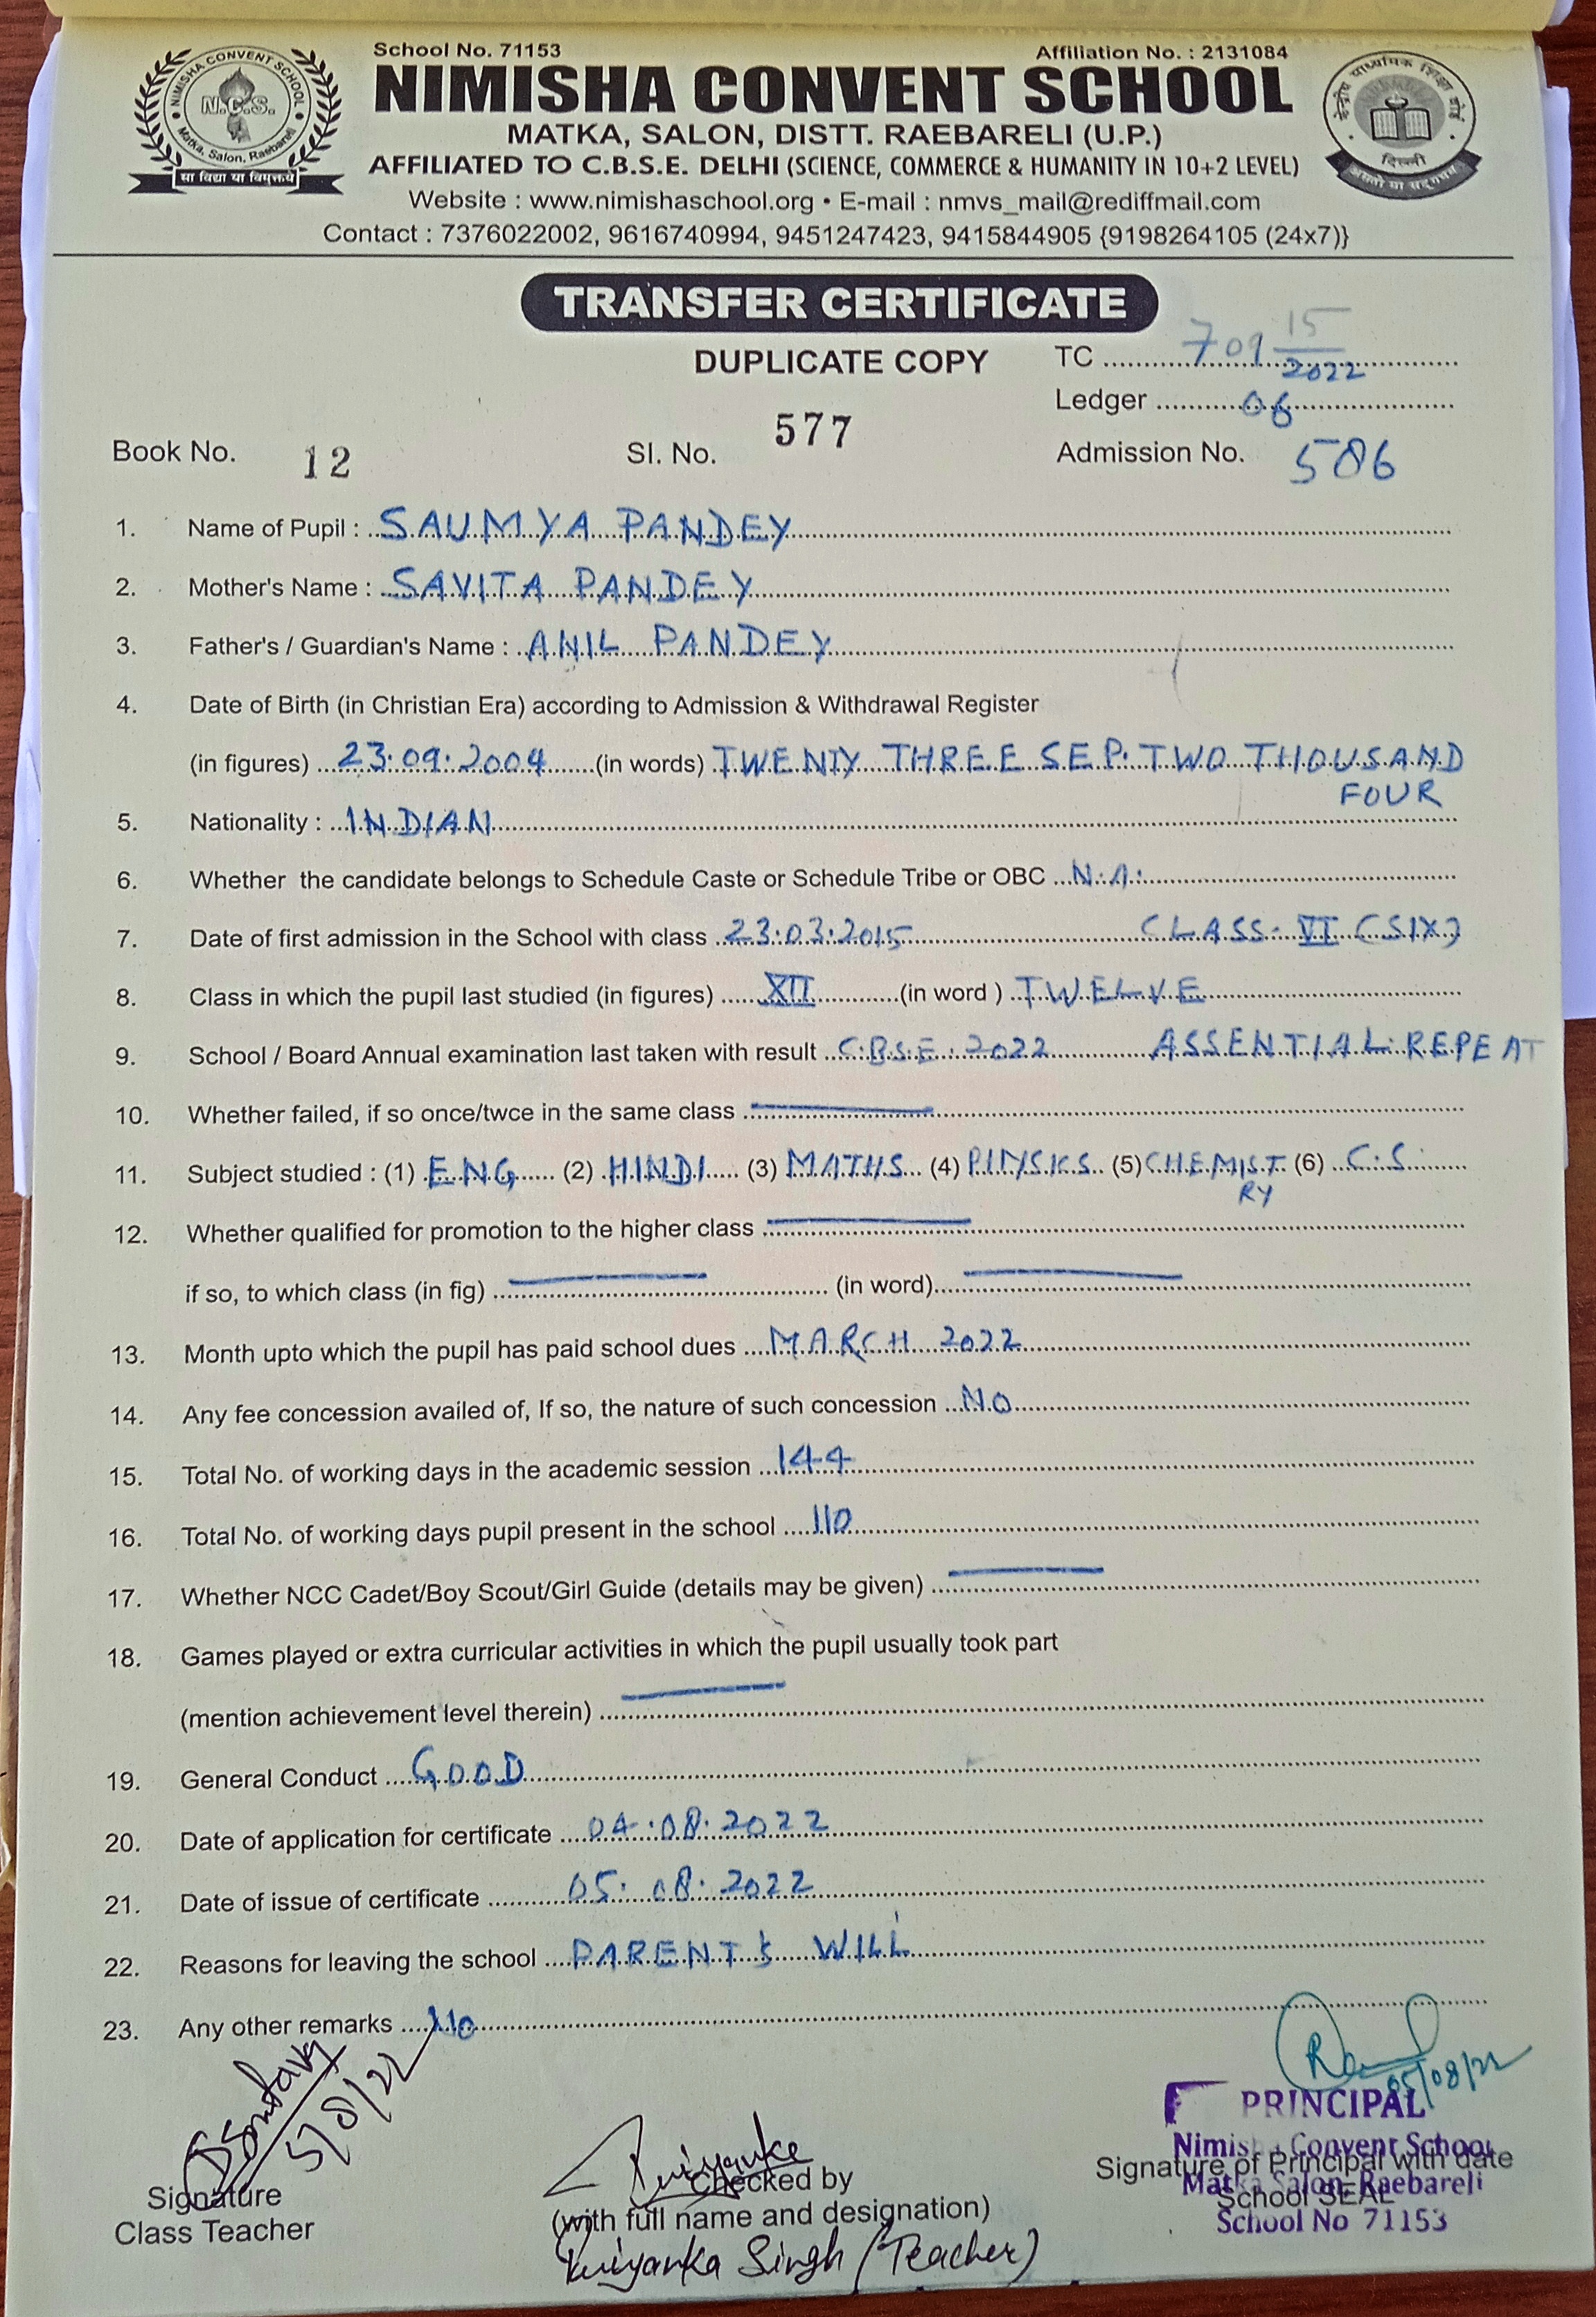 School No. 71153 Affiliation No. : 2131084
NIMISHA CONVENT SCHOOL
N.C.S.
Matka, Salon, Raebareli
सा विद्या या विमुक्तये
केन्द्रीय माध्यमिक शिक्षा बोर्ड
दिल्ली
असतो मा सद्गमय
NIMISHA CONVENT SCHOOL
MATKA, SALON, DISTT. RAEBARELI (U.P.)
AFFILIATED TO C.B.S.E. DELHI (SCIENCE, COMMERCE & HUMANITY IN 10+2 LEVEL)
Website : www.nimishaschool.org • E-mail : nmvs_mail@rediffmail.com
Contact : 7376022002, 9616740994, 9451247423, 9415844905 {9198264105 (24x7)}
TRANSFER CERTIFICATE
DUPLICATE COPY TC 709 15/2022
Ledger 06
Book No. 12 Sl. No. 577 Admission No. 586
1. Name of Pupil : SAUMYA PANDEY
2. Mother's Name : SAVITA PANDEY
3. Father's / Guardian's Name : ANIL PANDEY
4. Date of Birth (in Christian Era) according to Admission & Withdrawal Register
(in figures) 23.09.2004 (in words) TWENTY THREE SEP. TWO THOUSAND
FOUR
5. Nationality : INDIAN
6. Whether the candidate belongs to Schedule Caste or Schedule Tribe or OBC N.A.
7. Date of first admission in the School with class 23.03.2015 CLASS- VI (SIX)
8. Class in which the pupil last studied (in figures) XII (in word ) TWELVE
9. School / Board Annual examination last taken with result C.B.S.E. 2022 ASSENTIAL REPEAT
10. Whether failed, if so once/twce in the same class
11. Subject studied : (1) ENG (2) HINDI (3) MATHS (4) PHYSICS (5) CHEMIST (6) C.S
RY
12. Whether qualified for promotion to the higher class
if so, to which class (in fig) (in word)
13. Month upto which the pupil has paid school dues MARCH 2022
14. Any fee concession availed of, If so, the nature of such concession NO
15. Total No. of working days in the academic session 144
16. Total No. of working days pupil present in the school 110
17. Whether NCC Cadet/Boy Scout/Girl Guide (details may be given)
18. Games played or extra curricular activities in which the pupil usually took part
(mention achievement level therein)
19. General Conduct GOOD
20. Date of application for certificate 04.08.2022
21. Date of issue of certificate 05.08.2022
22. Reasons for leaving the school PARENT'S WILL
23. Any other remarks No
5/8/22
05/08/22
PRINCIPAL
Nimisha Convent School
Matka Salon, Raebareli
School No 71153
Signature
Class Teacher
Priyanka
Checked by
(with full name and designation)
Priyanka Singh (Teacher)
Signature of Principal with date
School SEAL